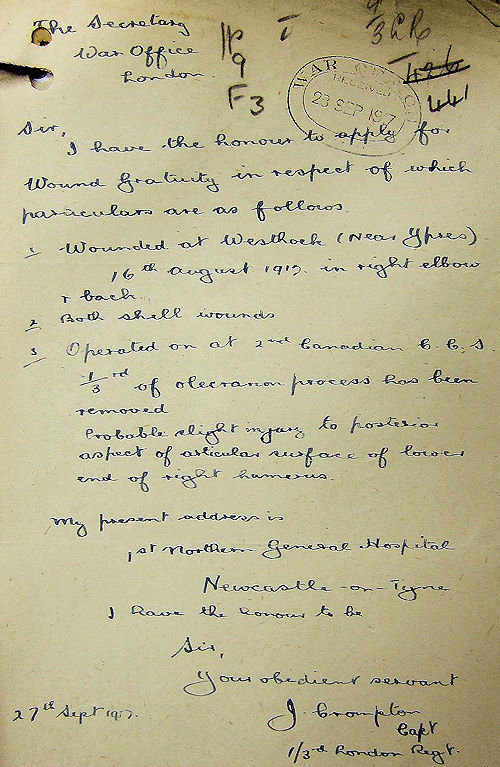 The Secretary
War Office
London.
9
F3
3
426
441
WAR OFFICE
RECEIVED
28 SEP 1917
Sir,
I have the honour to apply for
Wound Gratuity in respect of which
particulars are as follows.
1 Wounded at Westhoek (Near Ypres)
16th August 1917. in right elbow
+ back.
2 Both shell wounds
3 Operated on at 2nd Canadian C.C.S.
1/3rd of olecranon process has been
removed
Probable slight injury to posterior
aspect of articular surface of lower
end of right humerus.
My present address is
1st Northern General Hospital
Newcastle-on-Tyne
I have the honour to be
Sir,
Your obedient servant
J. Crompton
Capt
1/3rd London Regt.
27th Sept 1917.